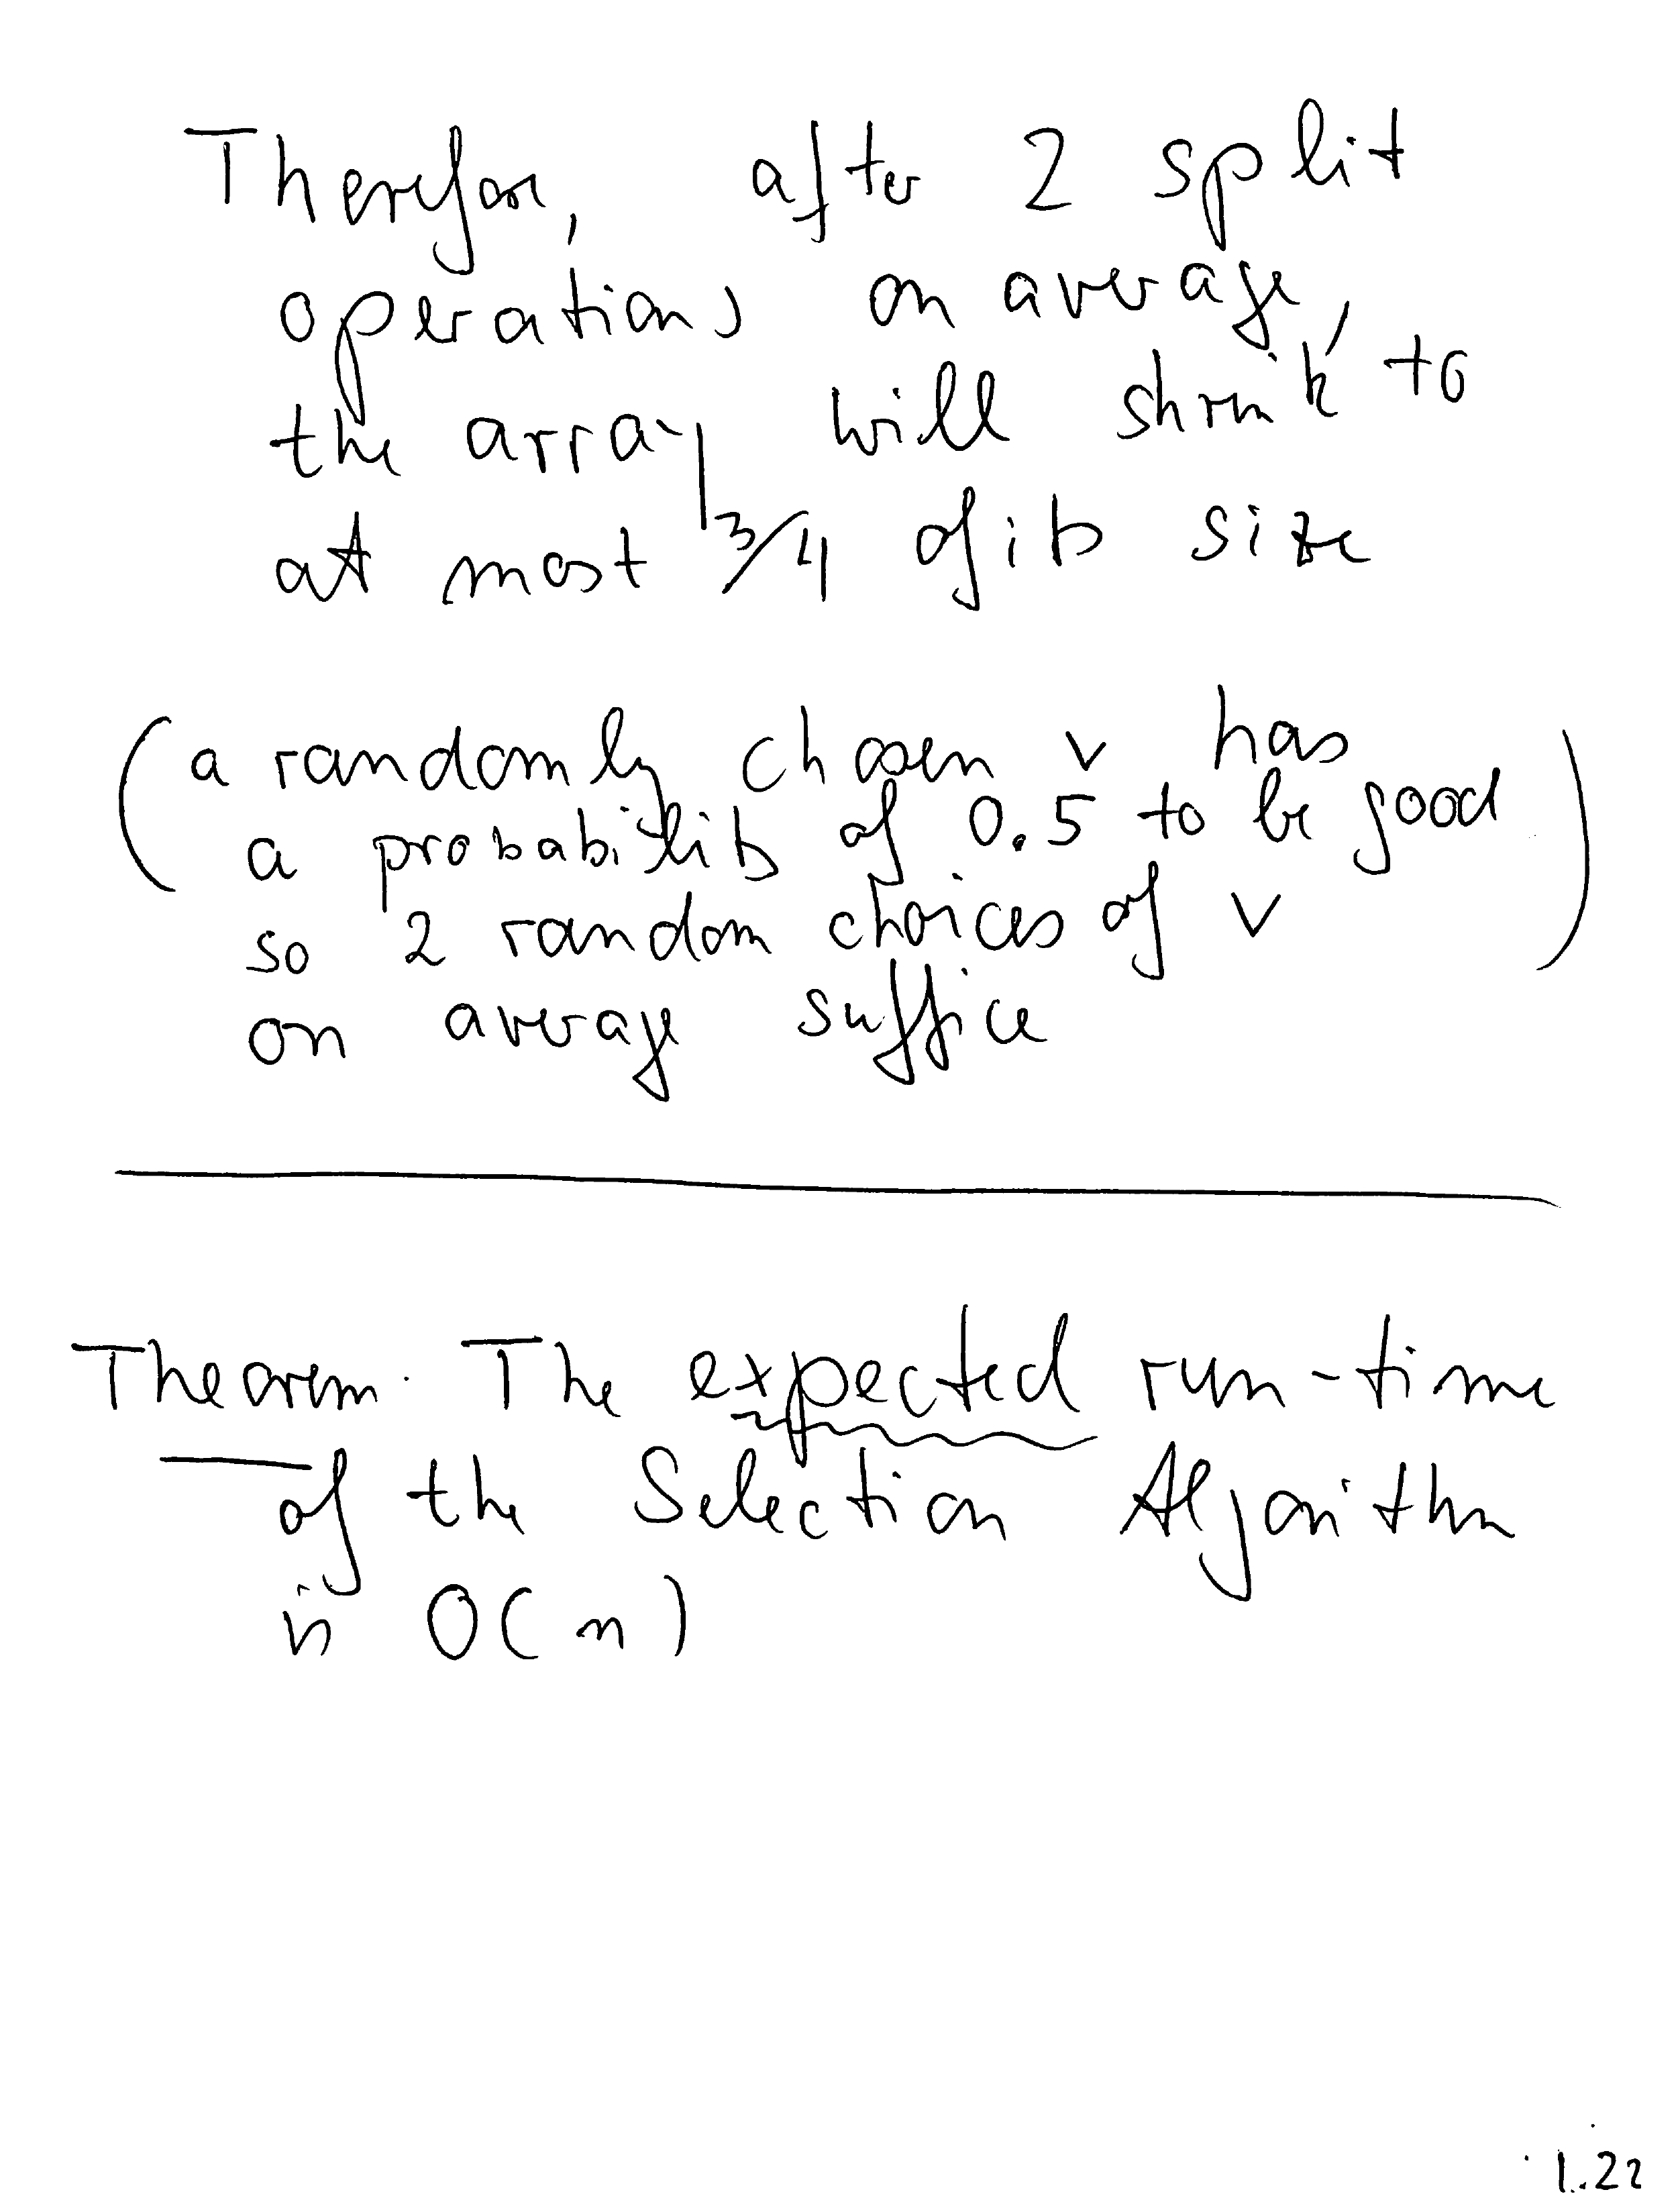 Therefore, after 2 split
operations on average,
the array will shrink to
at most 3/4 of its size
(a randomly chosen v has
a probability of 0.5 to be good
so 2 random choices of v
on average suffice)
Theorem. The expected run-time
of the Selection Algorithm
is O(n)
1.22